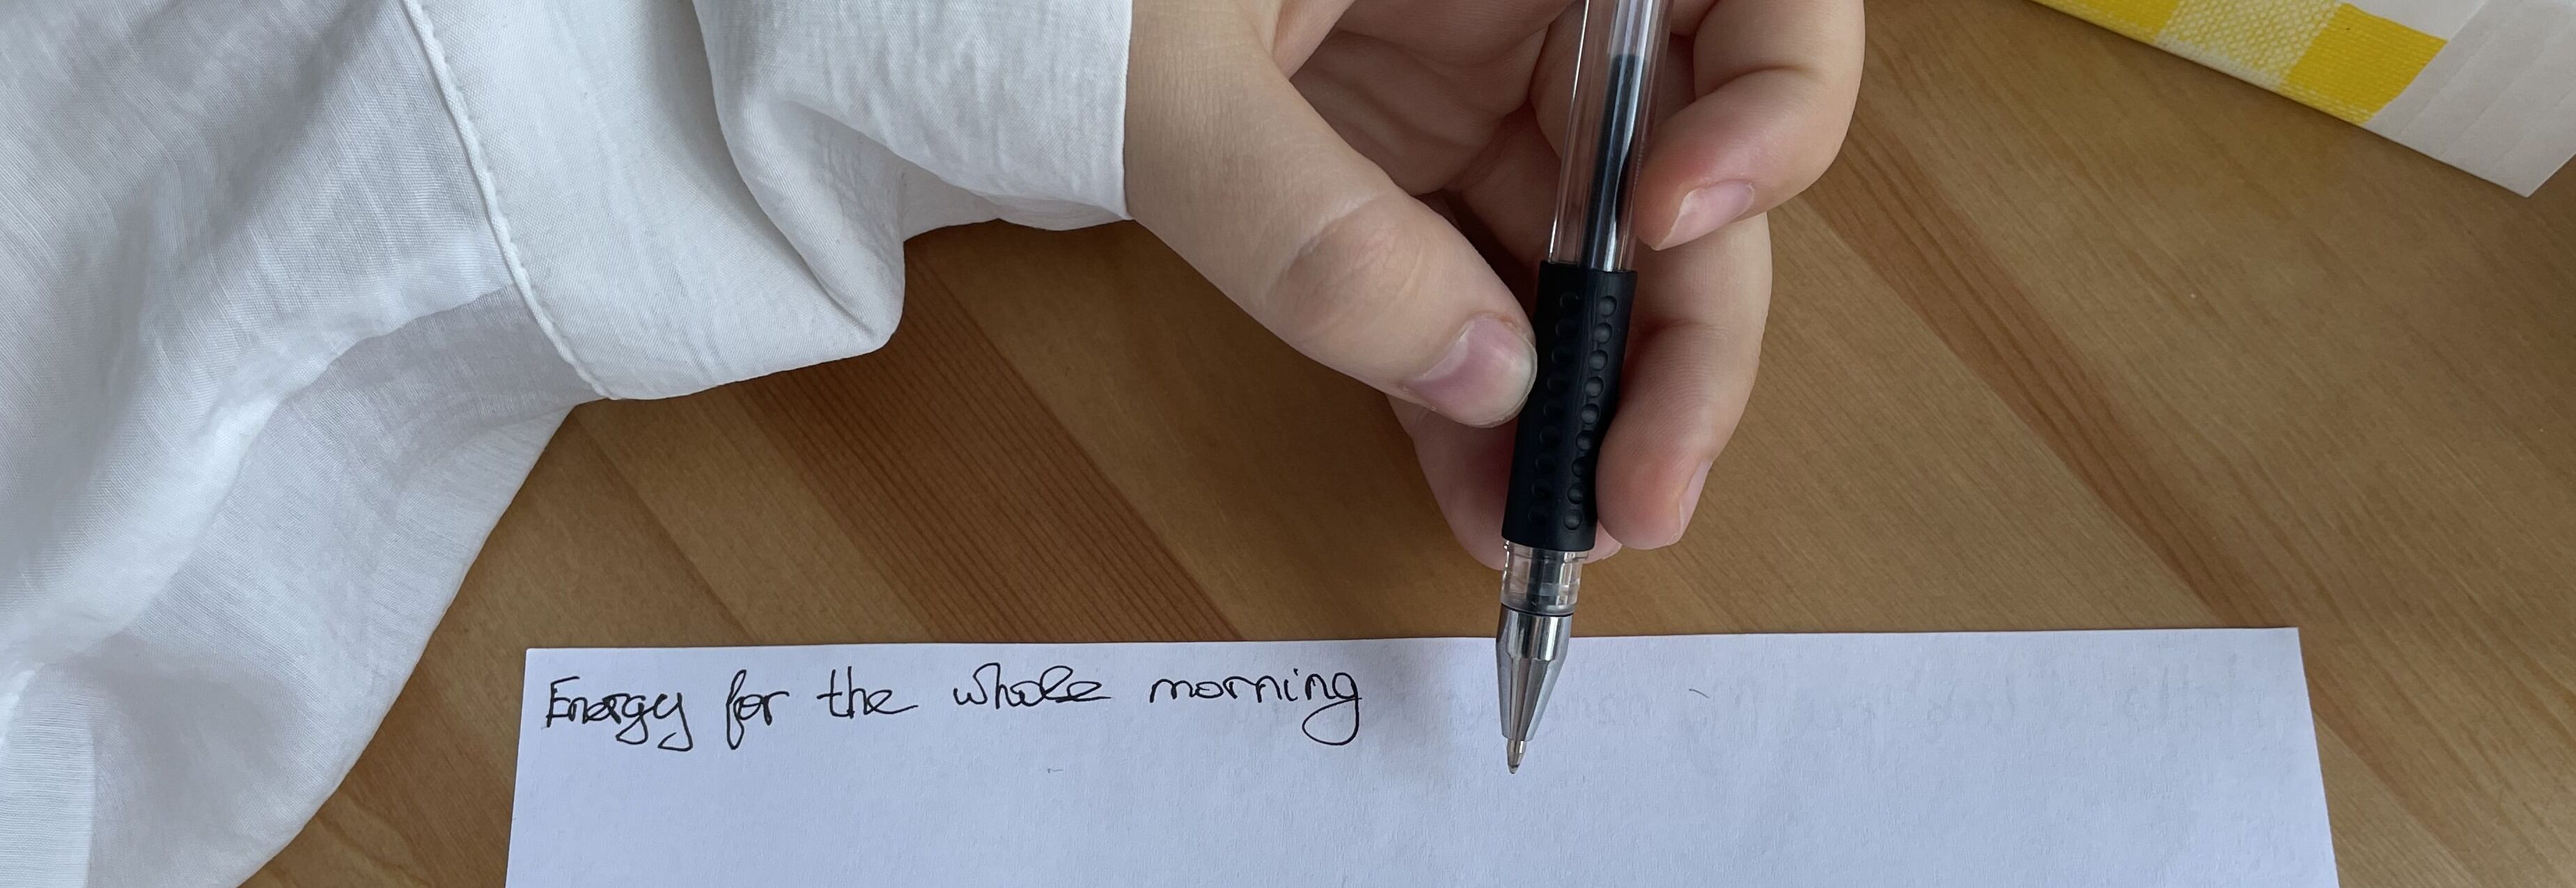 Energy for the whole morning